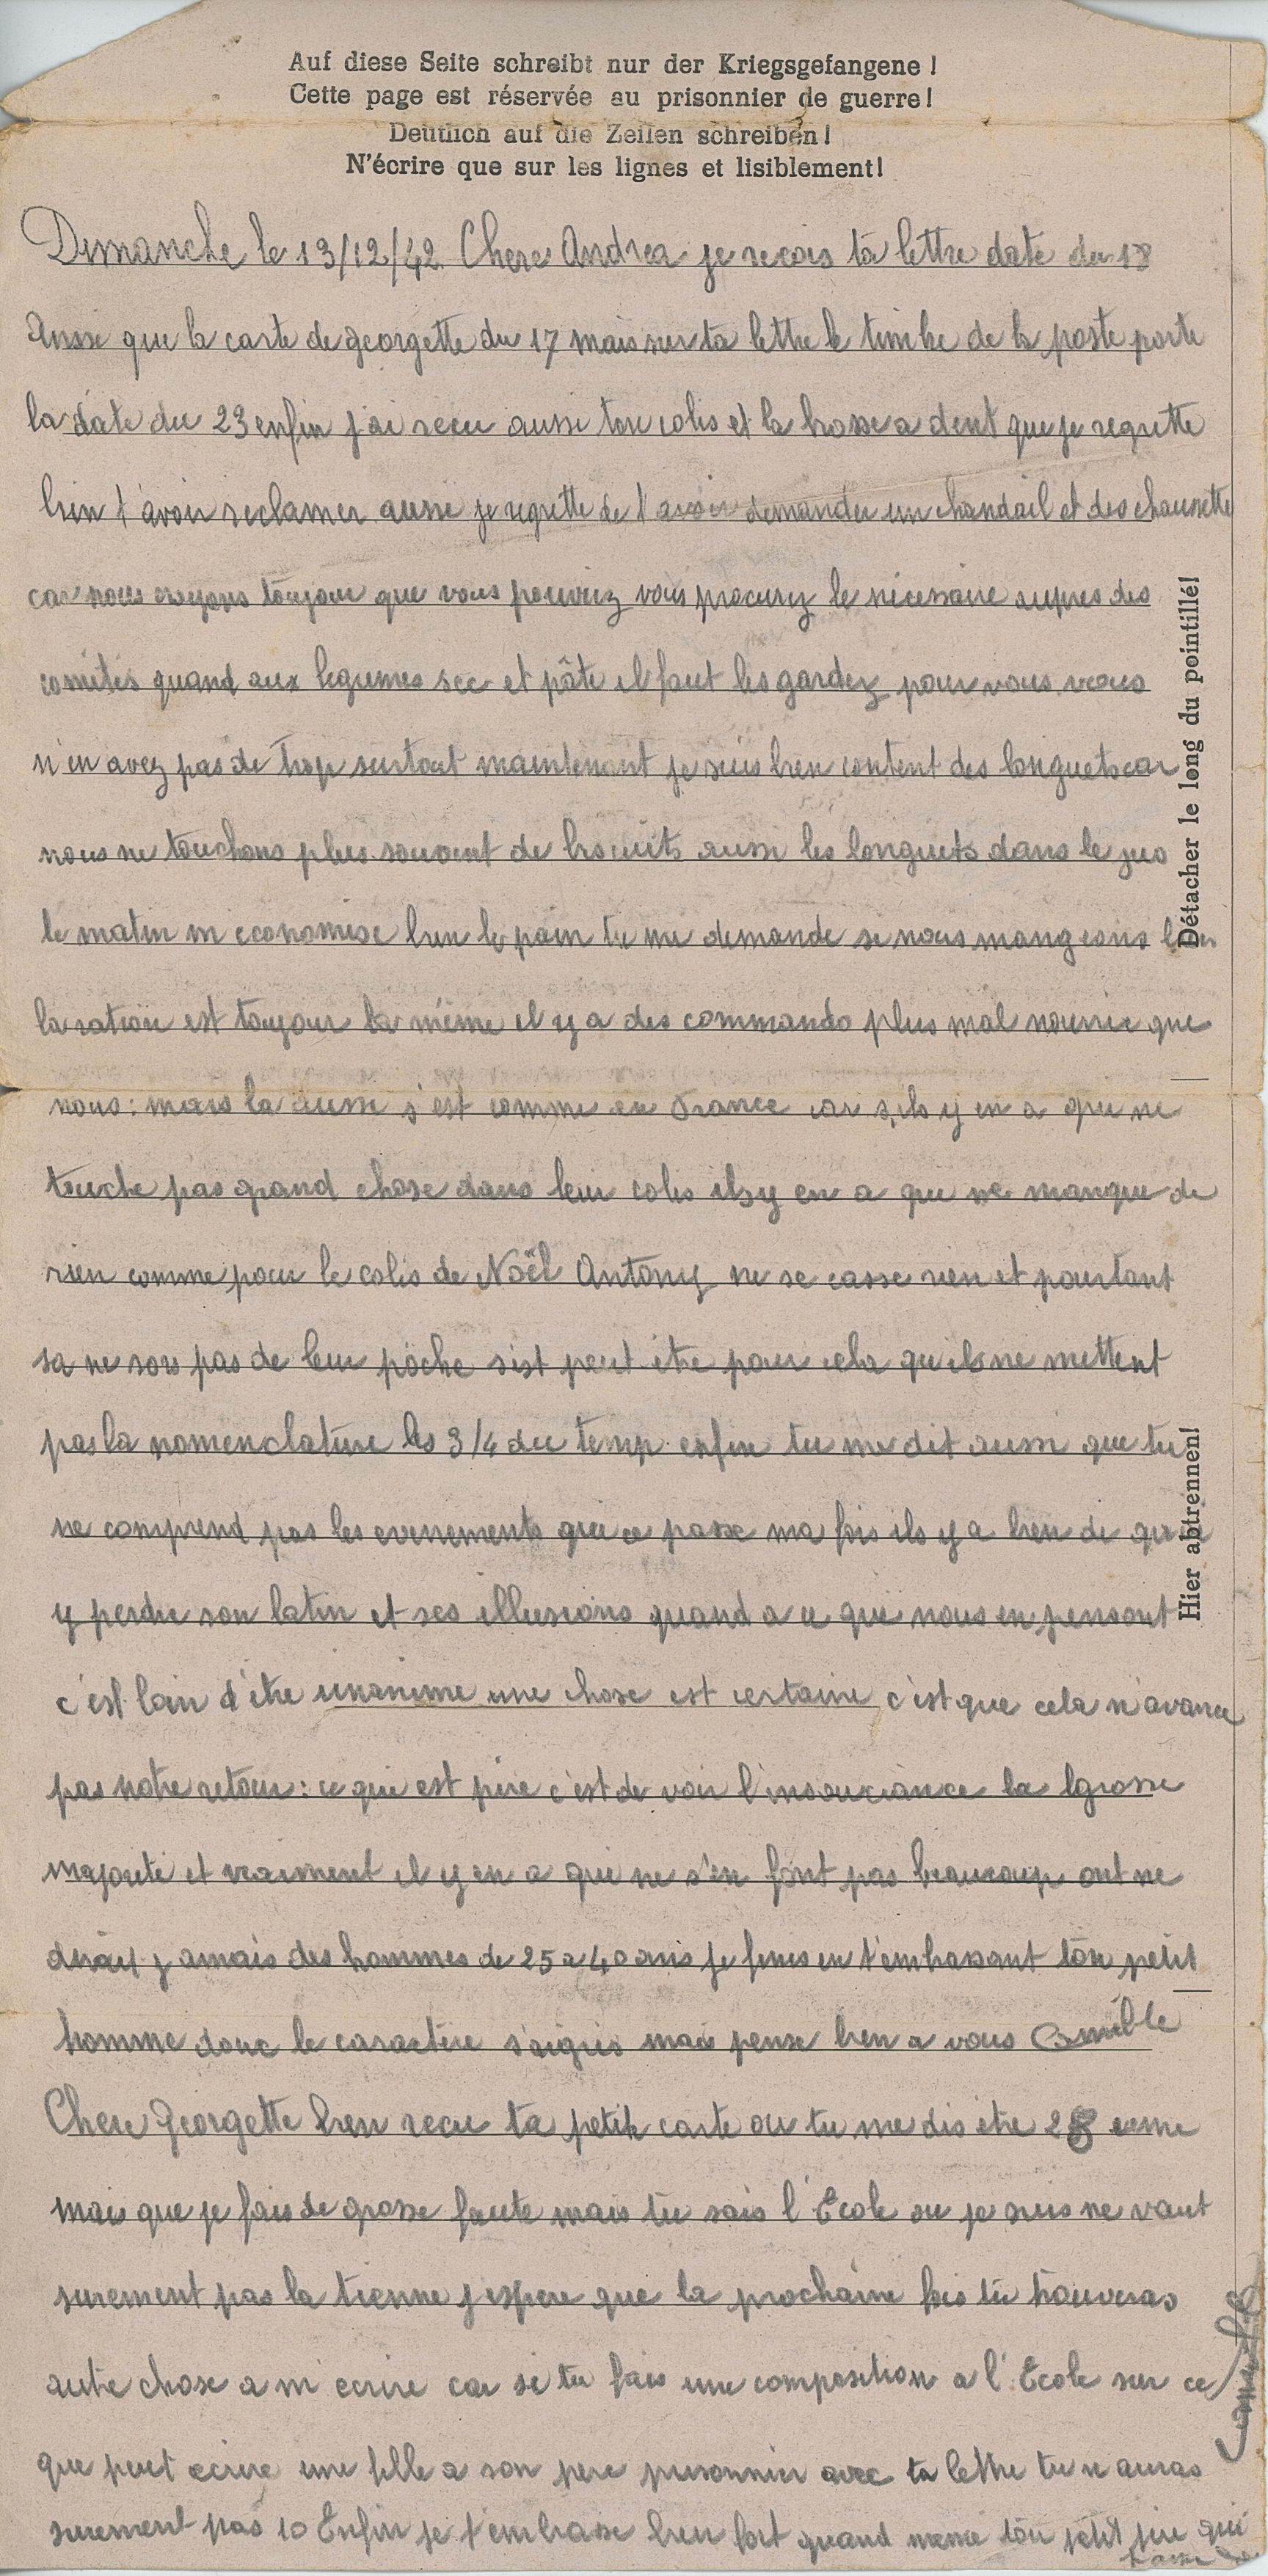 Auf diese Seite schreibt nur der Kriegsgefangene!
Cette page est réservée au prisonnier de guerre!
Deutlich auf die Zeilen schreiben!
N'écrire que sur les lignes et lisiblement!
Dimanche le 13/12/42 Chere Andrea je recois ta lettre date du 18
Ainsi que la carte de georgette du 17 mais sur ta lettre le timbre de la poste porte
la date du 23 enfin j'ai recu aussi ton colis et la brosse a dent que je regrette
bien t'avoir reclamer aussi je regrette de t'avoir demander un chandail et des chaussette
car nous croyons toujour que vous pouviez vous procurez le nécessaire aupres des
comités quand aux legumes sec et pâte il faut les gardez pour vous vous
n'en avez pas de trop surtout maintenant je suis bien content des longuets car
nous ne touchons plus souvent de biscuits aussi les longuets dans le jus
le matin m'economise bien le pain tu me demande si nous mangeons bien
la ration est toujour la même il y a des commando plus mal nourrie que
nous: mais la aussi s'est comme en France car s'ils y en a qui ne
touche pas grand chose dans leur colis ils y en a qui ne manque de
rien comme pour le colis de Noël Antony ne se casse rien et pourtant
sa ne sors pas de leur poche s'est peut être pour cela qu'ils ne mettent
pas la nomenclature les 3/4 du temp enfin tu me dit aussi que tu
ne comprend pas les evenements qui ce passe ma fois ils y a bien de quoi
y perdre son latin et ses illusions quand a ce que nous en pensont
c'est loin d'être unanime une chose est certaine c'est que cela n'avance
pas notre retour: ce qui est pire c'est de voir l'insouciance la grosse
majorité et vraiment il y en a qui ne s'en font pas beaucoup ont ne
dirait jamais des hommes de 25 a 40 ans je finis en t'embrassant ton petit
homme donc le caractère s'aigris mais pense bien a vous Camille
Chere Georgette bien recu ta petite carte ou tu me dis être 28 eme
mais que je fais de grosse faute mais tu sais l'École ou je suis ne vaut
surement pas la tienne j'espere que la prochaine fois tu trouveras
autre chose a m'ecrire car si tu fais une composition a l'École sur ce
que peut ecrire une fille a son pere prisonnier avec ta lettre tu n'auras
surement pas 10 Enfin je t'embrasse bien fort quand meme ton petit pere qui
Camille
Détacher le long du pointillé!
Hier abtrennen!